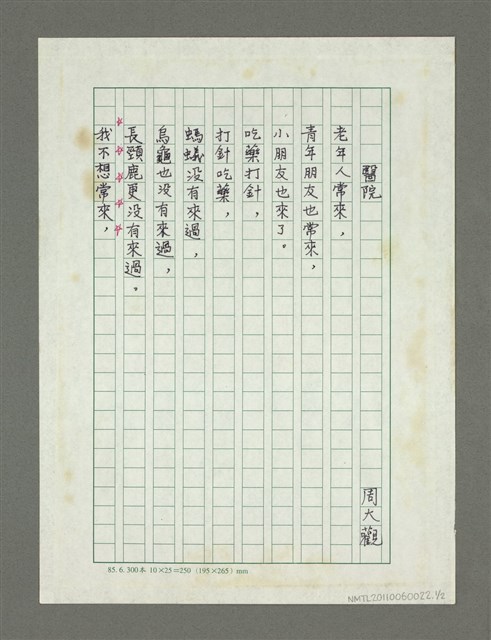 醫院
周大觀
老年人常來，
青年朋友也常來，
小朋友也來了。
吃藥打針，
打針吃藥，
螞蟻沒有來過，
烏龜也沒有來過，
長頸鹿更沒有來過。
我不想常來，
85. 6. 300本 10×25=250（195×265）mm
NMTL20110060022.1/2